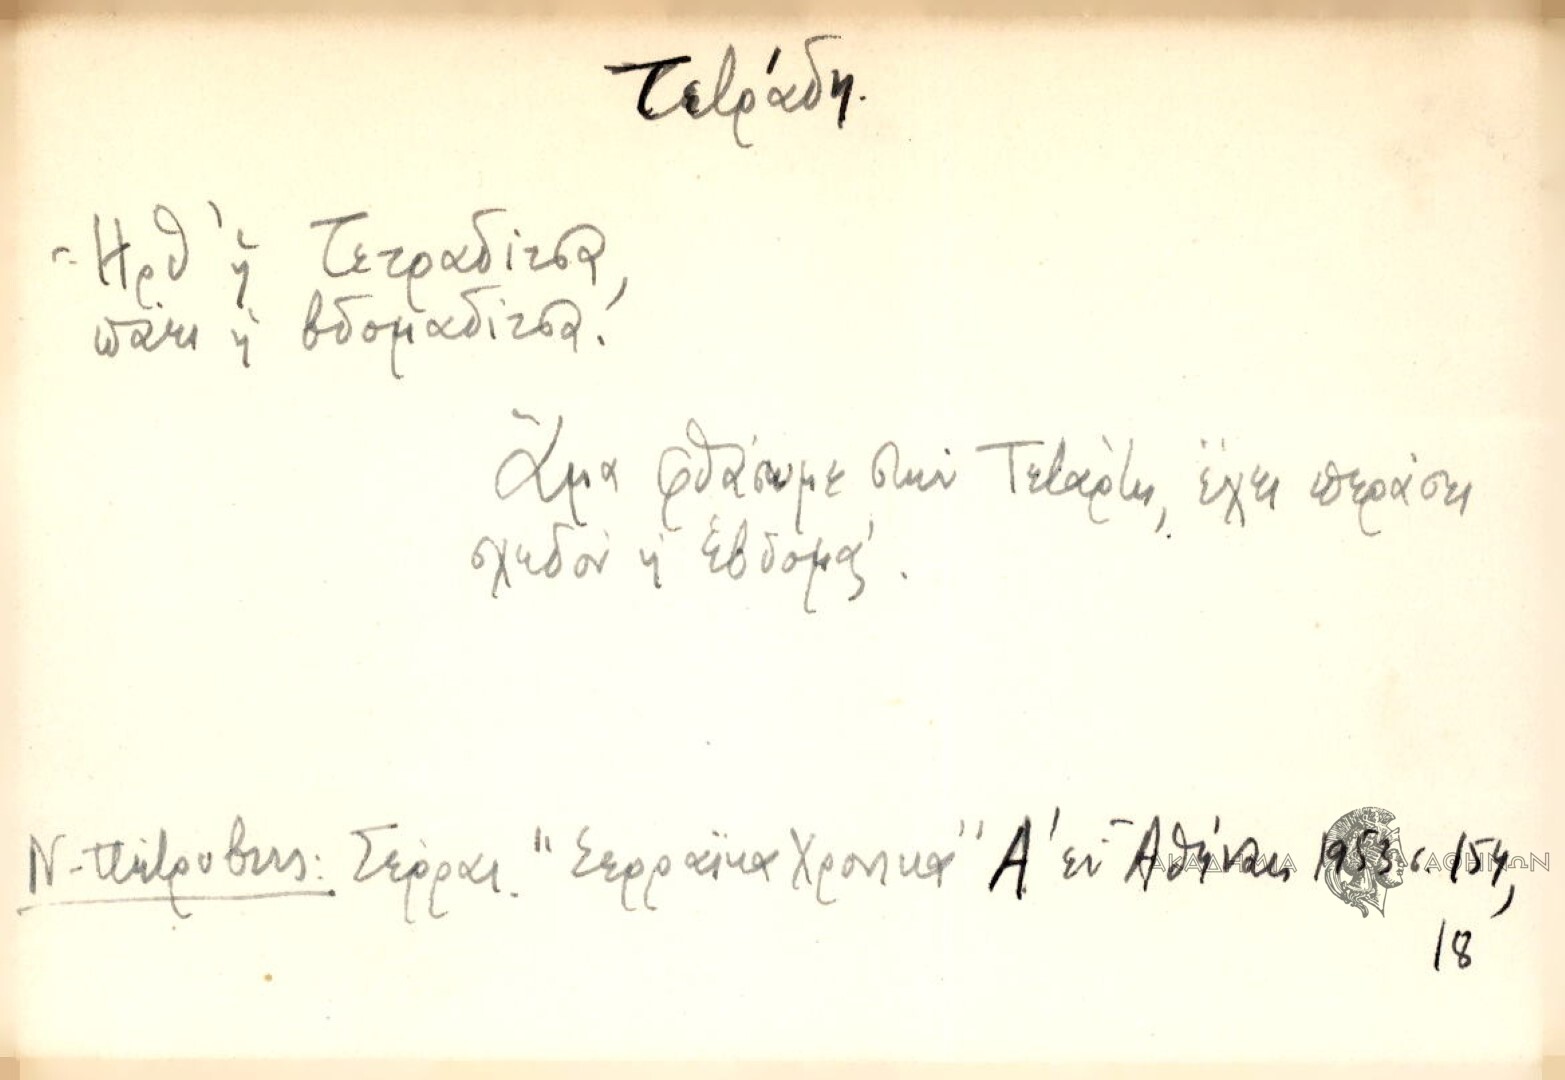 Τετράδη.
Ἦρθ' ἡ Τετραδίτσα,
πάει ἡ βδομαδίτσα!
Ἅμα φθάσουμε στὴν Τετάρτη, ἔχει περάσει
σχεδὸν ἡ ἑβδομάς.
Σέρραι. "Σερραϊκά Χρονικά" Α' ἐν Ἀθήναις 1953 σ. 154,
18
ΑΚΑΔΗΜΙΑ ΑΘΗΝΩΝ